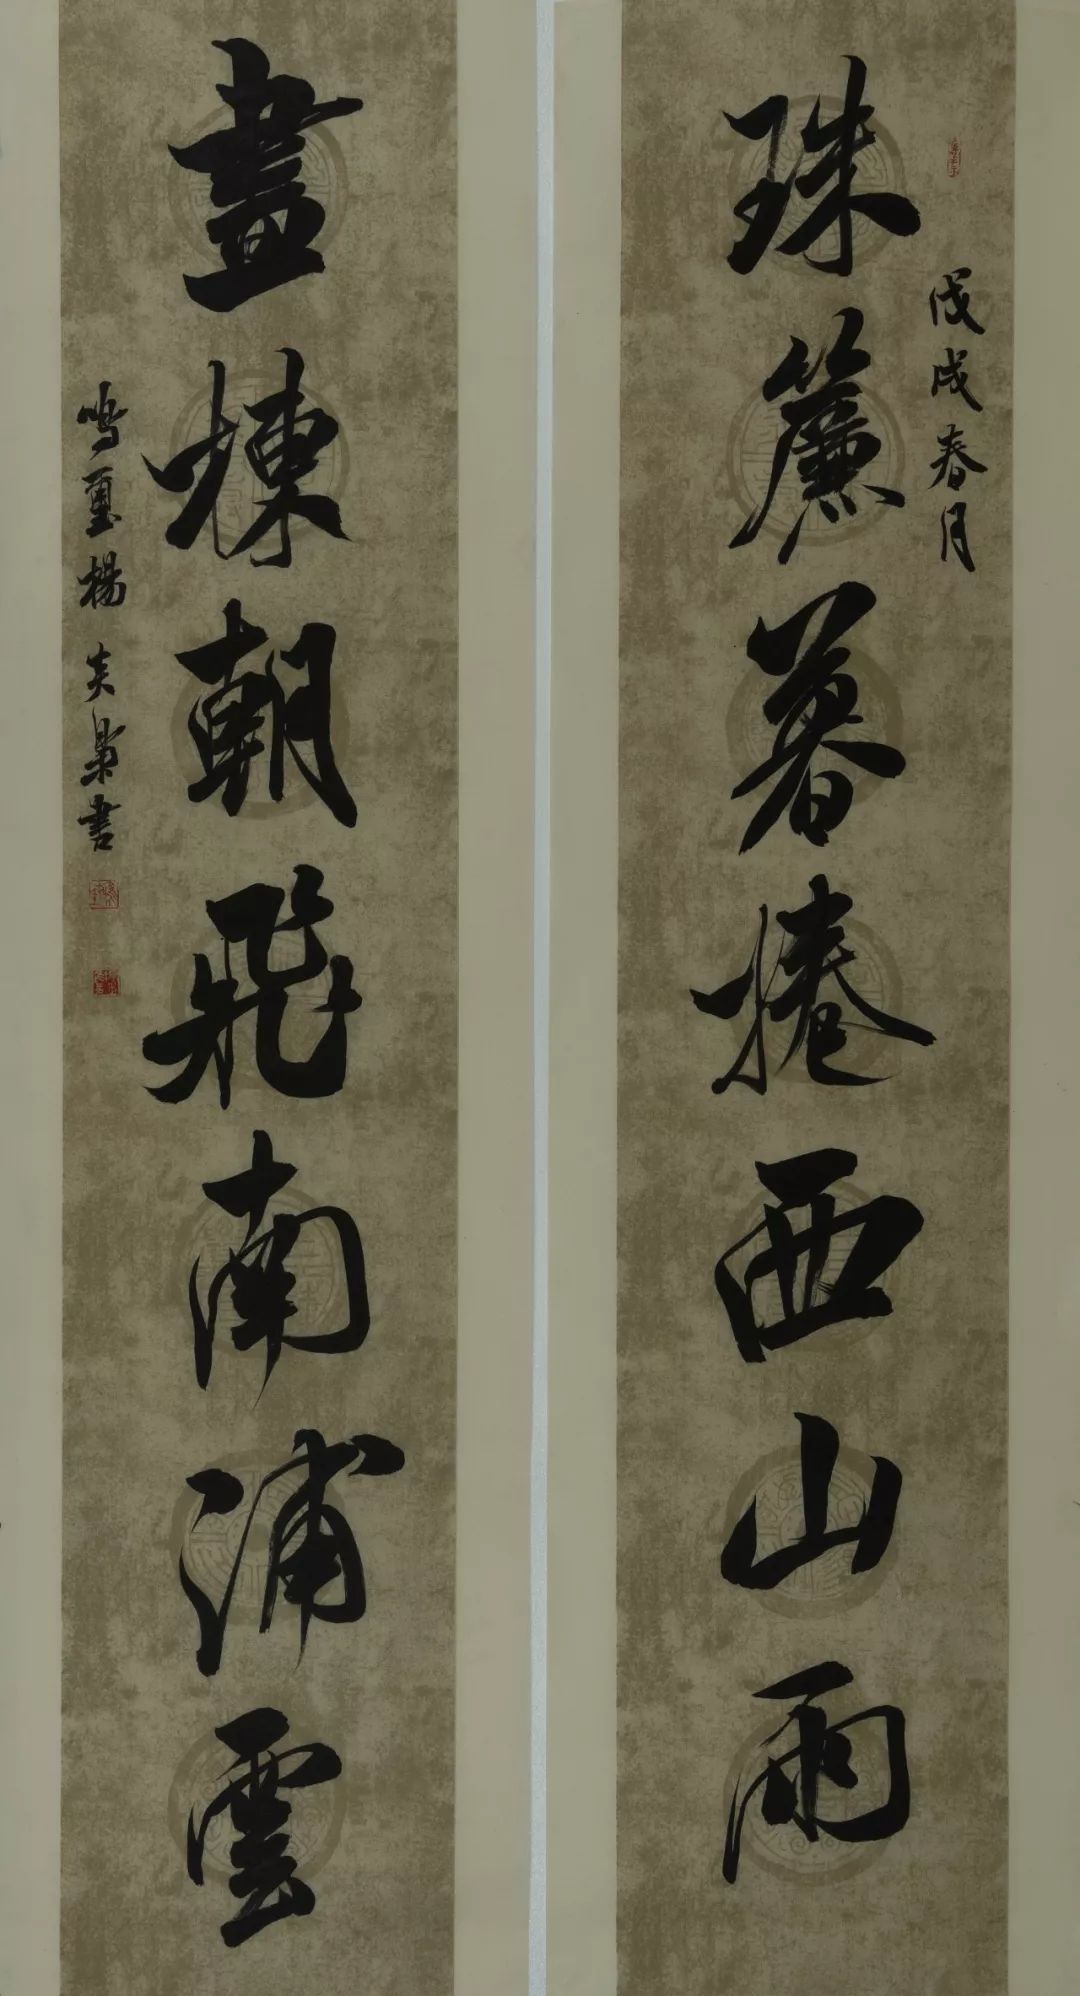 珠簾暮捲西山雨
戊戌春月
畫棟朝飛南浦雲
鳴璽楊炎梟書